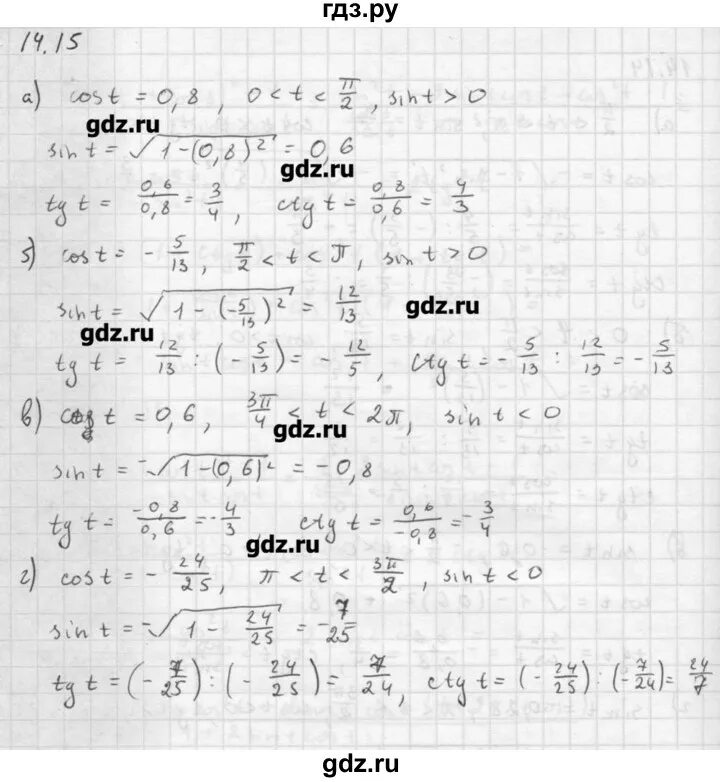 гдз.ру
14.15
а) cos t = 0,8 , 0 < t < π/2 , sin t > 0
gdz.ru
sin t = √(1-(0,8)²) = 0,6
gdz.ru
tg t = 0,6/0,8 = 3/4 , ctg t = 0,8/0,6 = 4/3
б) cos t = - 5/13 , π/2 < t < π, sin t > 0
sin t = √(1 - (-5/13)²) = 12/13
gdz.ru
gdz.ru
tg t = 12/13 : (- 5/13) = - 12/5 , ctg t = - 5/13 : 12/13 = - 5/13
в) cos t = 0,6 , 3π/4 < t < 2π, sin t < 0
gdz.ru
sin t = -√(1-(0,6)²) = -0,8
tg t = -0,8/0,6 = -4/3 , ctg t = 0,6/-0,8 = -3/4
gdz.ru
г) cos t = - 24/25 , π < t < 3π/2 , sin t < 0
sin t = -√(1 - 24/25) = -7/25
tg t = (- 7/25) : (- 24/25) = 7/24 , ctg t = (- 24/25) : (- 7/24) = 24/7
gdz.ru